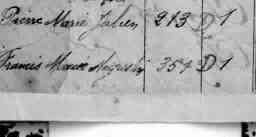 Pierre Marie Julien 213 D 1
Francis Marie Augustin 354 D 1